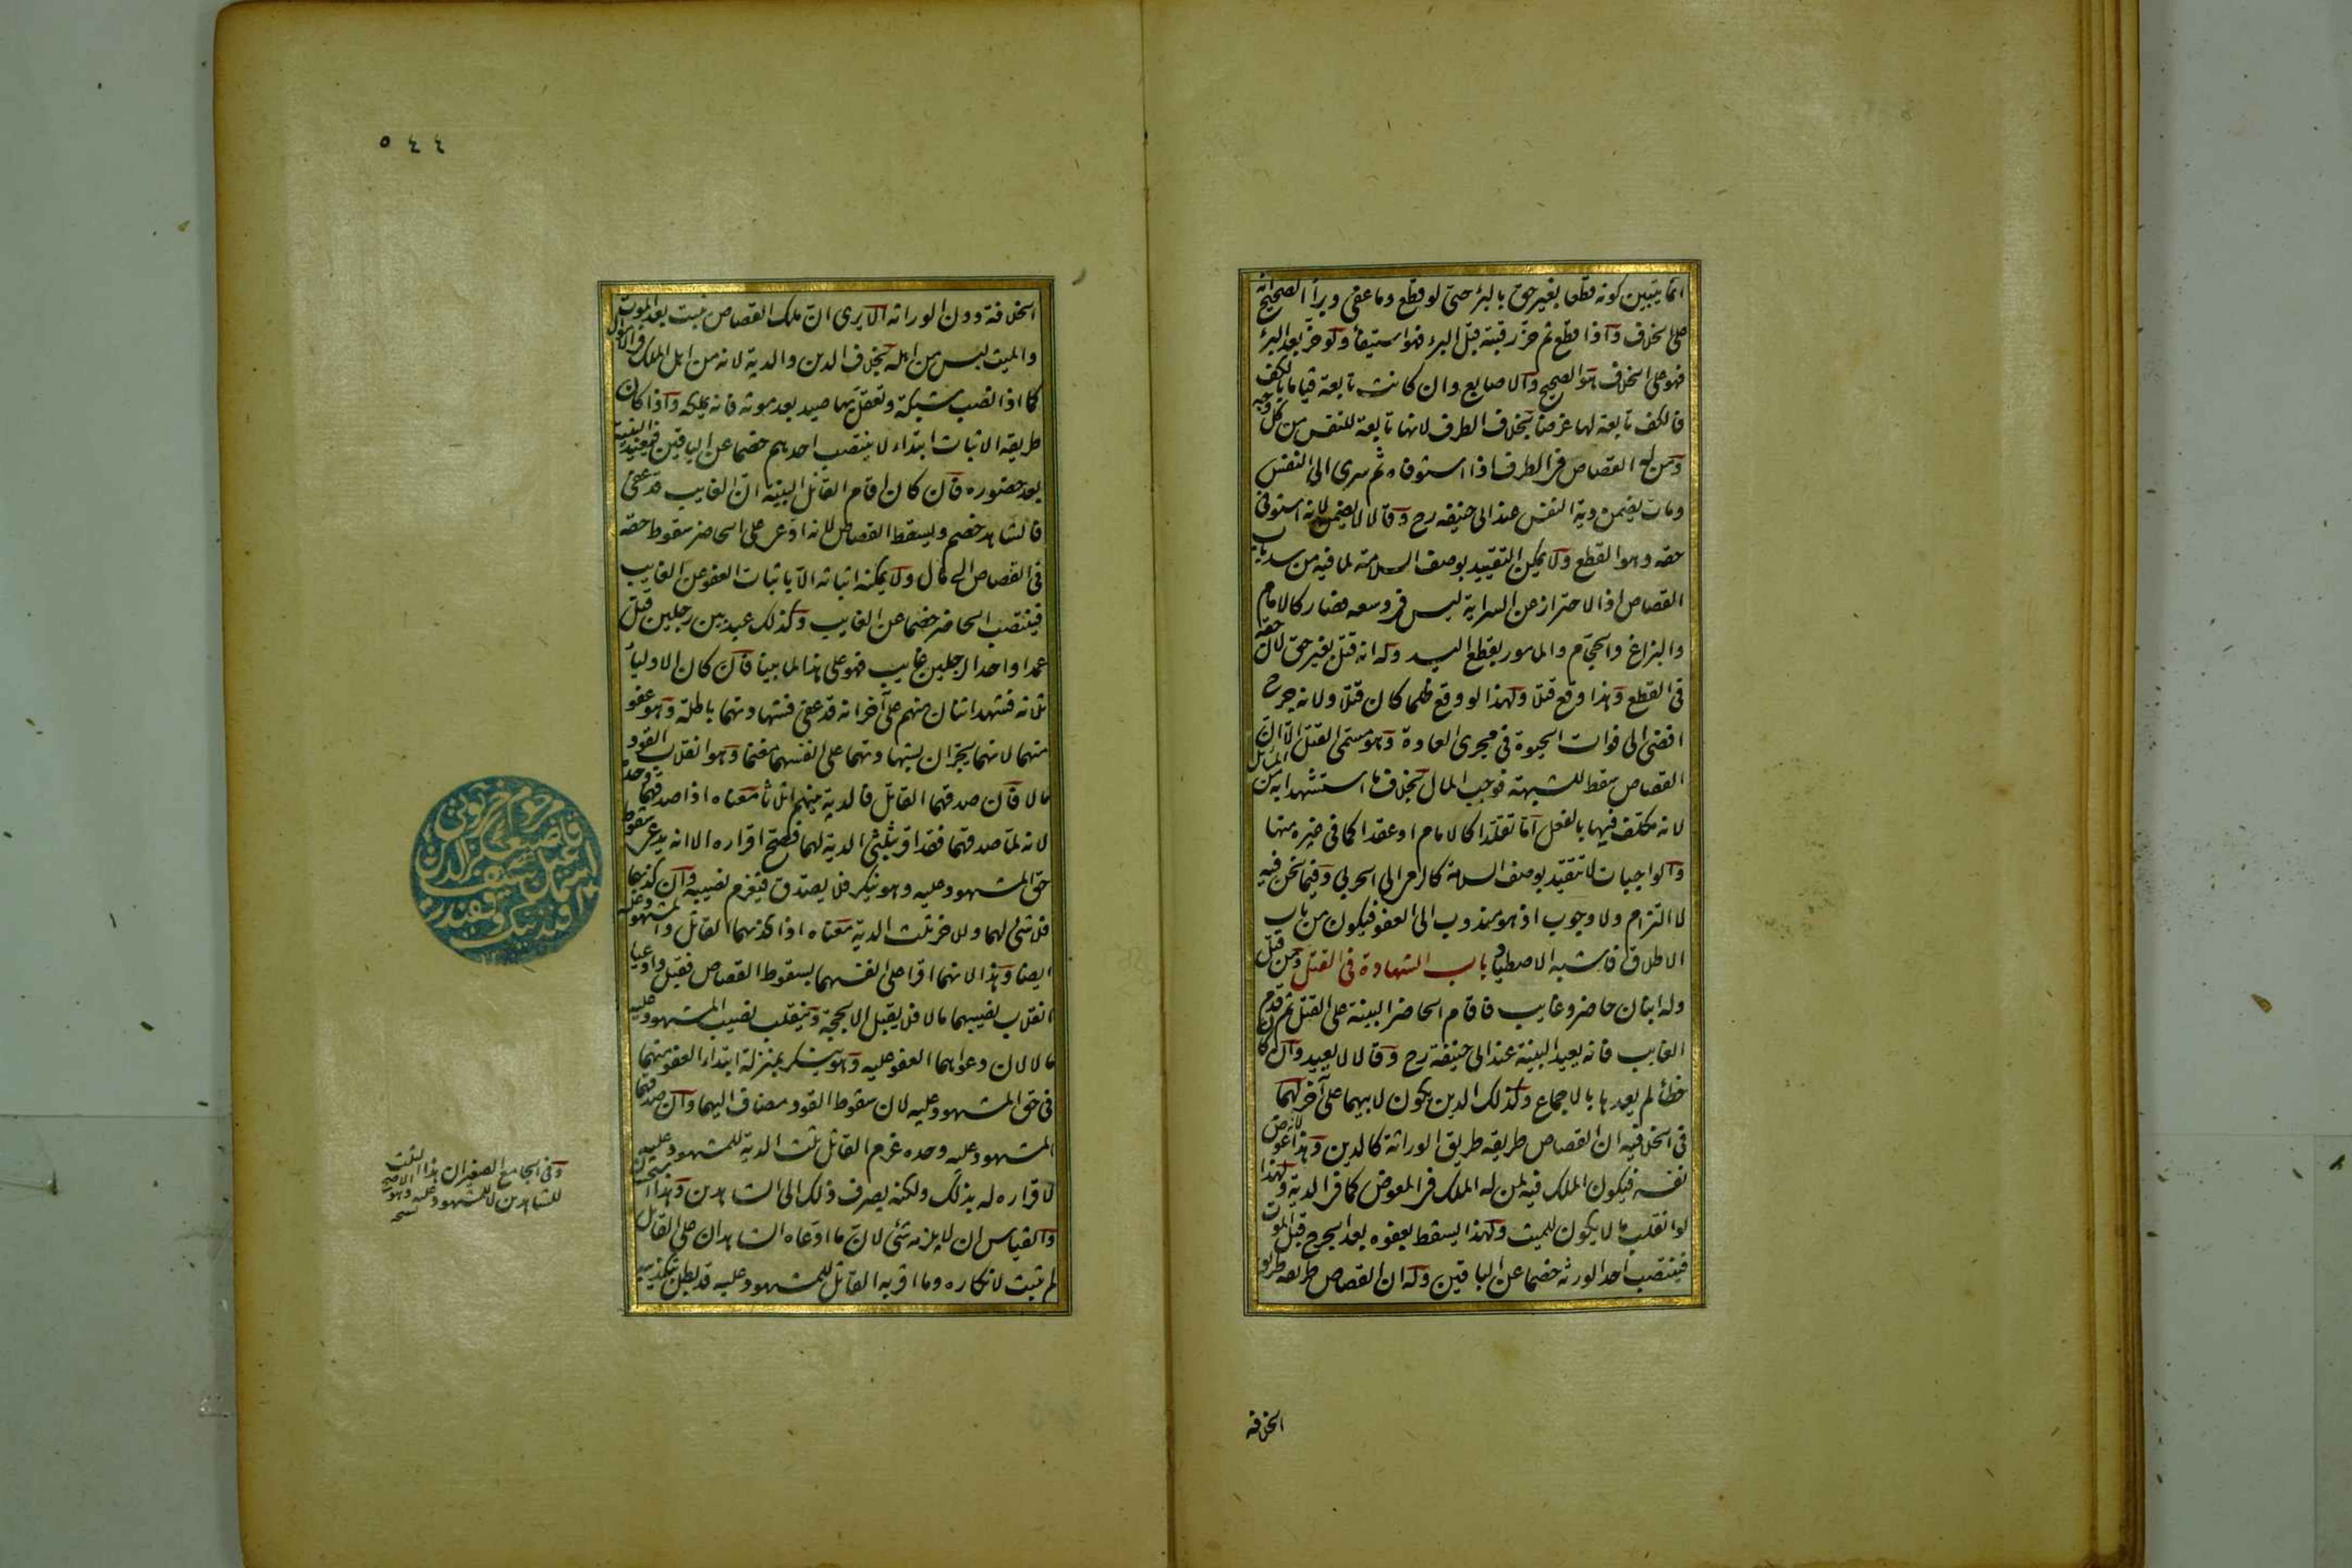 انما يتبين كونه قطعا بغير حق بالبرء حتى لو قطع وما عفى وبرأ الصحيح انه
على الخلاف واذا قطع ثم حز رقبته قبل البرء فهو استيفاء ولو حز بعد البرء
فهو على الخلاف هو الصحيح والاصابع وان كانت تابعة قياما بالكف
فالكف تابعة لها غرضا بخلاف الطرف لانها تابعة للنفس من كل وجه
ومن له القصاص فى الطرف اذا استوفاه ثم سرى الى النفس
ومات يضمن دية النفس عند ابى حنيفه رح وقالا لا يضمن لانه استوفى
حقه وهو القطع ولا يمكن التقييد بوصف السلامة لما فيه من سد باب
القصاص اذ الاحتراز عن السراية ليس فى وسعه فصار كالامام
والبزاغ والحجام والمامور بقطع اليد وله انه قتل بغير حق لان حقه
فى القطع وهذا وقع قتلا ولهذا لو وقع ظلما كان قتلا ولانه جرح
افضى الى فوات الحيوة فى مجرى العادة وهو مسمى القتل الا ان
القصاص سقط للشبهة فوجب المال بخلاف ما استشهدا به من المسائل
لانه مكلف فيها بالفعل اما تقلدا كالامام او عقدا كما فى غيره منها
والواجبات لا تتقيد بوصف السلامة كالرمى الى الحربى وفيما نحن فيه
لا التزام ولا وجوب اذ هو مندوب الى العفو فيكون من باب
الاطلاق فاشبه الاصطياد باب الشهادة فى القتل ومن قتل
وله ابنان حاضر وغايب فاقام الحاضر البينة على القتل ثم قدم
الغايب فانه يعيد البينة عند ابى حنيفة رح وقالا لا يعيد وان كان
خطأ لم يعدها بالاجماع وكذلك الدين يكون لابيهما على آخر لهما
فى الخلافيه ان القصاص طريقه طريق الوراثة كالدين وهذا لانه عوض
نفسه فيكون الملك فيه لمن له الملك فى المعوض كما فى الدية ولهذا
لو انقلب مالا يكون للميت ولهذا يسقط بعفوه بعد الجرح قبل الموت
فينتصب احد الورثه خصما عن الباقين وله ان القصاص طريقه طريق
الخلافة
٥٤٤
الخلافة دون الوراثه الا يرى ان ملك القصاص يثبت بعد الموت
والميت ليس من اهله بخلاف الدين والدية لانه من اهل الملك فى الاموال
كما اذا نصب شبكة وتعقل بها صيد بعد موته فانه يملكه واذا كان
طريقه الاثبات ابتداء لا ينتصب احدهم خصما عن الباقين فيعيد البينة
بعد حضوره فان كان اقام القاتل البينة ان الغايب قد عفى
فالشاهد خصم ويسقط القصاص لانه ادعى على الحاضر سقوط حقه
فى القصاص الى مال ولا يمكنه اثباته الا باثبات العفو من الغايب
فينتصب الحاضر خصما عن الغايب وكذلك عبد بين رجلين قتل
عمدا واحد الرجلين غايب فهو على هذا لما بينا فان كان الاولياء
ثلثه فشهد اثنان منهم على آخر انه قد عفى فشهادتهما باطلة وهو عفو
منهما لانهما يجران بشهادتهما على انفسهما مغنما وهو انقلاب القود
مالا فان صدقهما القاتل فالدية بينهم اثلاثا معناه اذا صدقهما وحده
لانه لما صدقهما فقد اقر بثلثى الدية لهما فصح اقراره الا انه يدعى سقوط
حق المشهود عليه وهو ينكر فلا يصدق فيغرم نصيبه وان كذبهما
فلا شئ لهما وللاخر ثلث الدية معناه اذا كذبهما القاتل والمشهود عليه
ايضا وهذا لانهما اقرا على انفسهما بسقوط القصاص فقبل وادعيا
انقلاب نصيبهما مالا فلا يقبل الا بحجة وينقلب نصيب المشهود عليه
مالا لان دعواهما العفو عليه وهو ينكر بمنزلة ابتداء العفو منهما
فى حق المشهود عليه لان سقوط القود مضاف اليهما وان صدقهما
المشهود عليه وحده غرم القاتل ثلث الدية للمشهود عليه
لاقراره له بذلك ولكنه يصرف ذلك الى الشاهدين وهذا استحسان
والقياس ان لا يلزمه شئ لان ما ادعاه الشاهدان على القاتل
لم يثبت لانكاره وما اقر به القاتل للمشهود عليه قد بطل بتكذيبه
وفى الجامع الصغير ان هذا الثلث
للشاهدين لا للمشهود عليه وهو الاصح
نسخه